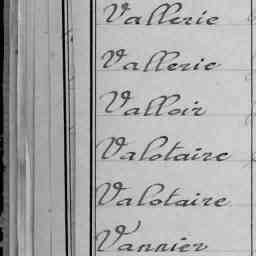 Vallerie
Vallerie
Valloir
Valotaire
Valotaire
Vannier